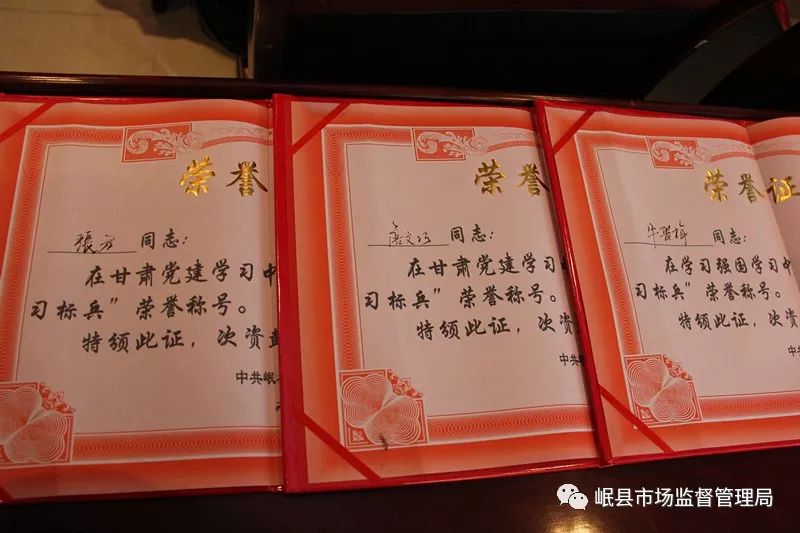 荣誉
張方 同志：
在甘肃党建学习中
习标兵”荣誉称号。
特颁此证，次资
中共岷
荣誉
同志：
在甘肃党建学习
习标兵”荣誉称号。
特颁此证，次资
中共岷
荣誉证
同志：
在学习强国学习中
习标兵”荣誉称号。
特颁此证，次资
中共
岷县市场监督管理局